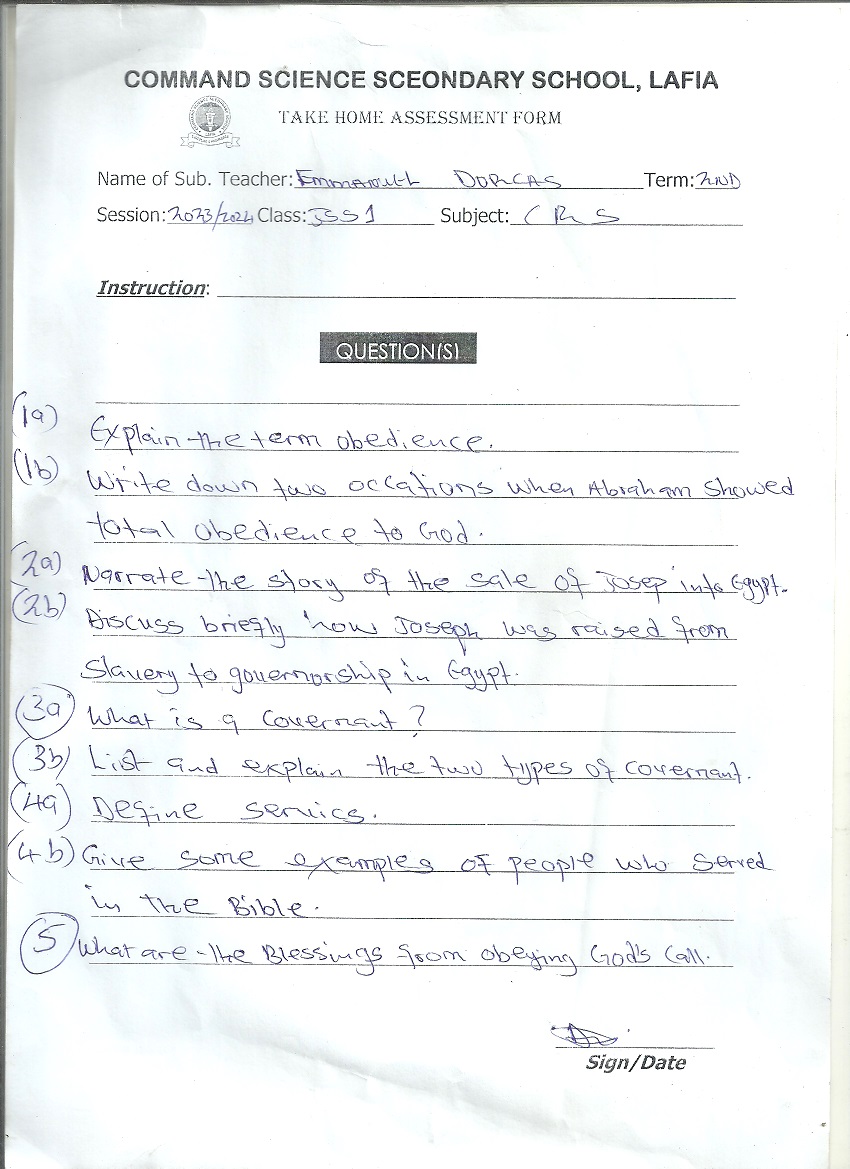 COMMAND SCIENCE SCEONDARY SCHOOL, LAFIA
TAKE HOME ASSESSMENT FORM
Name of Sub. Teacher: Emmanuel DORCAS Term: 2ND
Session: 2023/2024 Class: JSS1 Subject: CRS
Instruction:
QUESTION(S)
(1a) Explain the term obedience.
(1b) Write down two occations when Abraham showed
total obedience to God.
2a) Narrate the story of the sale of Josep' into Egypt.
(2b) Discuss briefly how Joseph was raised from
Slavery to governorship in Egypt.
3a What is a Covernant?
(3b) List and explain the two types of covernant.
(4a) Define servics.
(4b) Give some examples of people who served
in the Bible.
5 What are the Blessings from obeying God's Call.
Sign/Date